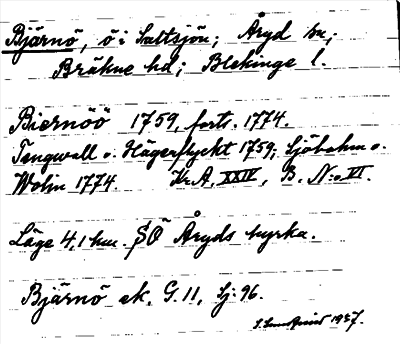 Bjärnö, ö i Saltsjön; Åryd sn,
Bräkne hd; Blekinge l.
Biernöö 1759, forts. 1774.
Tengwall o. Hägerflyckt 1759; Sjöbohm o.
Wolin 1774. Kr.A. XXIV, B. N:o VI.
Läge 4,1 km. SÖ Åryds kyrka.
Bjärnö ek. G. 11, Sj: 96.
1937.